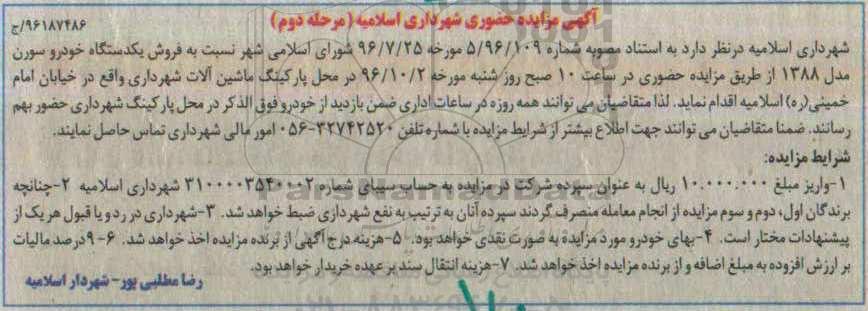 آگهی مزایده حضوری شهرداری اسلامیه (مرحله دوم)
۹۶۱۸۷۴۸۶/ج
شهرداری اسلامیه درنظر دارد به استناد مصوبه شماره ۵/۹۶/۱۰۹ مورخه ۹۶/۷/۲۵ شورای اسلامی شهر نسبت به فروش یکدستگاه خودرو سورن
مدل ۱۳۸۸ از طریق مزایده حضوری در ساعت ۱۰ صبح روز شنبه مورخه ۹۶/۱۰/۲ در محل پارکینگ ماشین آلات شهرداری واقع در خیابان امام
خمینی(ره) اسلامیه اقدام نماید. لذا متقاضیان می توانند همه روزه در ساعات اداری ضمن بازدید از خودرو فوق الذکر در محل پارکینگ شهرداری حضور بهم
رسانند. ضمنا متقاضیان می توانند جهت اطلاع بیشتر از شرایط مزایده با شماره تلفن ۳۲۷۴۲۵۲۰-۰۵۶ امور مالی شهرداری تماس حاصل نمایند.
شرایط مزایده:
۱-واریز مبلغ ۱۰.۰۰۰.۰۰۰ ریال به عنوان سپرده شرکت در مزایده به حساب سیبای شماره ۳۱۰۰۰۰۳۵۴۰۰۰۲ شهرداری اسلامیه ۲-چنانچه
برندگان اول، دوم و سوم مزایده از انجام معامله منصرف گردند سپرده آنان به ترتیب به نفع شهرداری ضبط خواهد شد. ۳-شهرداری در رد و یا قبول هر یک از
پیشنهادات مختار است. ۴-بهای خودرو مورد مزایده به صورت نقدی خواهد بود. ۵-هزینه درج آگهی از برنده مزایده اخذ خواهد شد. ۶- ۹درصد مالیات
بر ارزش افزوده به مبلغ اضافه و از برنده مزایده اخذ خواهد شد. ۷-هزینه انتقال سند بر عهده خریدار خواهد بود.
رضا مطلبی پور- شهردار اسلامیه